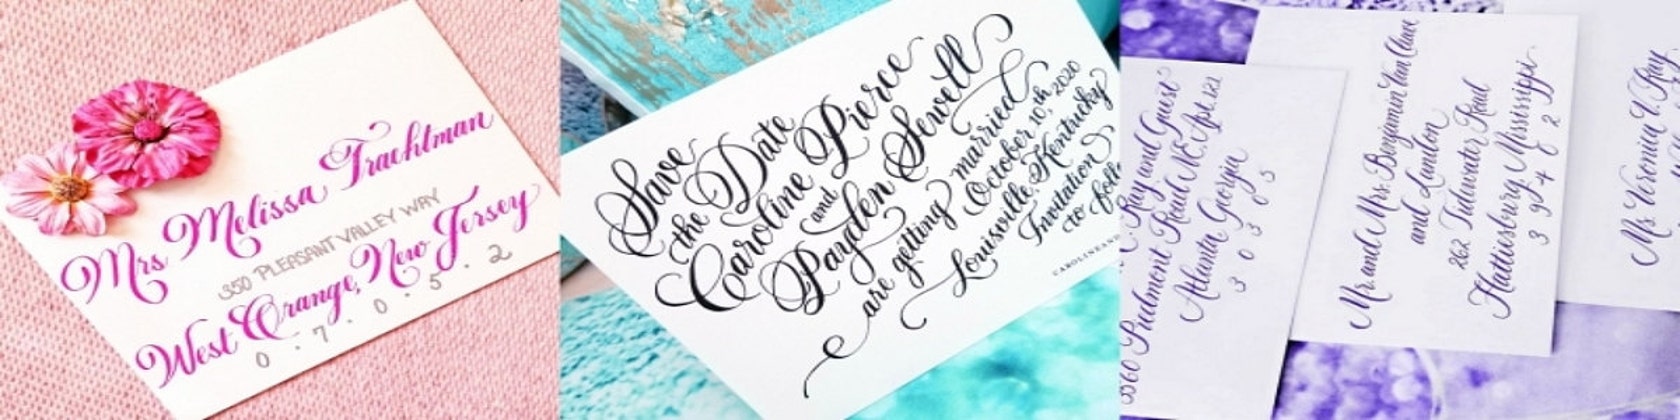 Mrs Melissa Trachtman
350 PLEASANT VALLEY WAY
West Orange, New Jersey
0 . 7 . 0 . 5 . 2
Save
the Date
Caroline Pierce
and
Payden Sewell
are getting married
October 10th, 2020
Louisville, Kentucky
Invitation
to follo
CAROLINEAND
Ray and Guest
Piedmont Road NE, Apt. 121
Atlanta Georgia
3 0 3 0 5
Mr. and Mrs. Benjamin Van Cleave
and Landon
262 Tidewater Road
Hattiesburg Mississippi
3 9 4 0 2
Ms. Veronica W. Ray